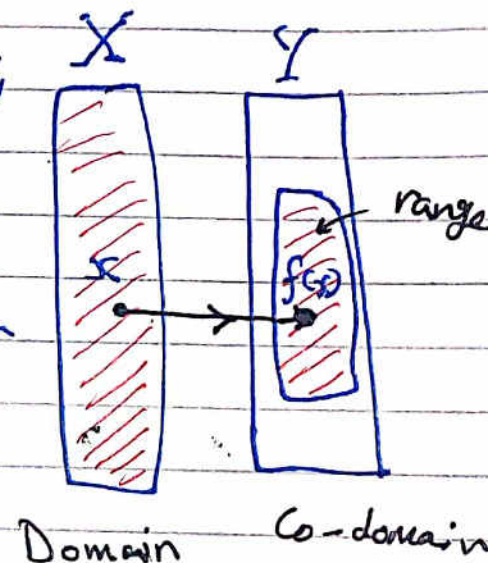 X Y
range
x f(x)
Domain Co-domain